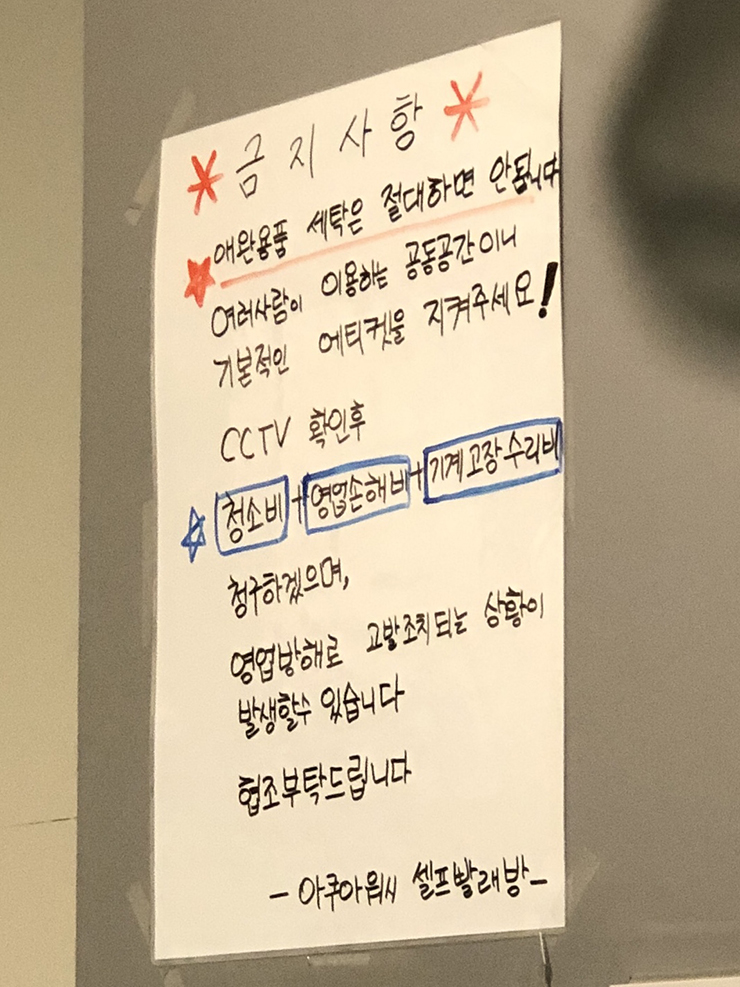 금지사항
애완용품 세탁은 절대하면 안됩니다
여러사람이 이용하는 공동공간이니
기본적인 에티켓을 지켜주세요!
CCTV 확인후
청소비+영업손해비+기계고장수리비
청구하겠으며,
영업방해로 고발조치되는 상황이
발생할수 있습니다
협조부탁드립니다
- 아쿠아워시 셀프빨래방 -